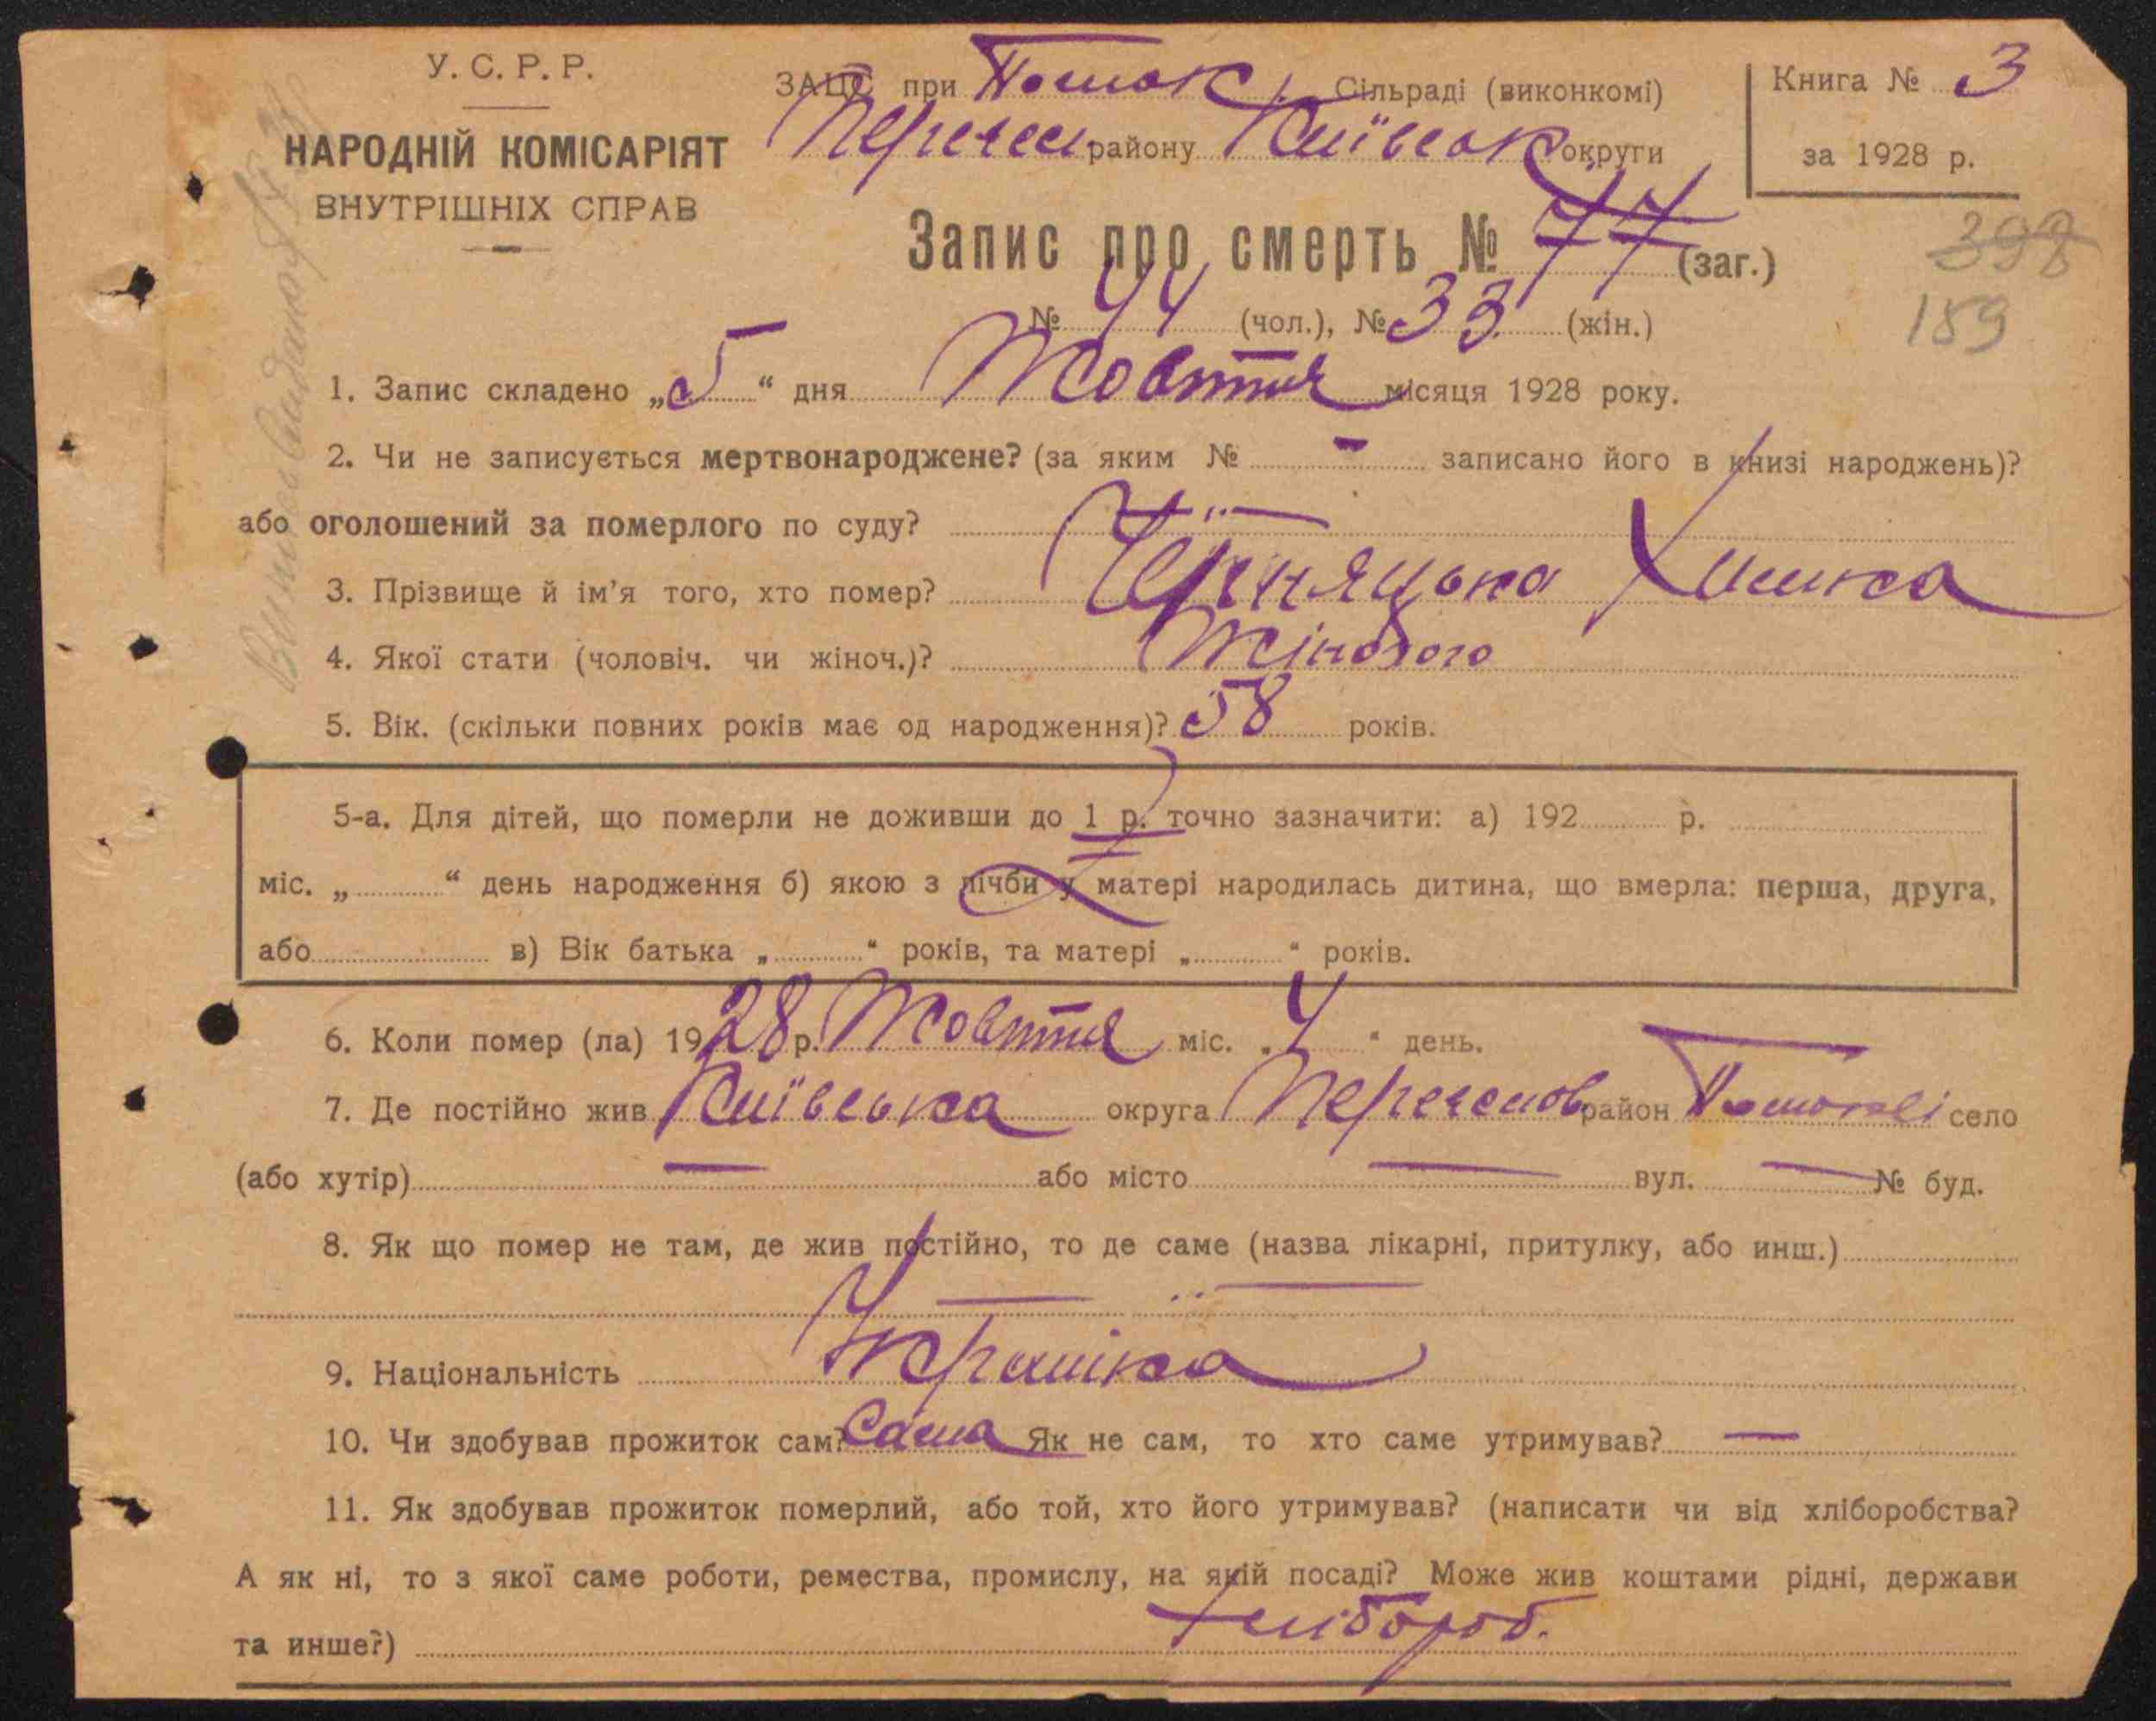 У. С. Р. Р.
НАРОДНІЙ КОМІСАРІЯТ
ВНУТРІШНІХ СПРАВ
ЗАЦС при Поток. Сільраді (виконкомі)
району Київськ округи
Книга № 3
за 1928 р.
Запис про смерть № 77 (заг.)
№ 44 (чол.), № 33 (жін.)
398
189
1. Запис складено „5“ дня Жовтня місяця 1928 року.
2. Чи не записується мертвонароджене? (за яким № - записано його в книзі народжень)?
або оголошений за померлого по суду?
3. Прізвище й ім'я того, хто помер? Черняцька Химка
4. Якої стати (чоловіч. чи жіноч.)? Жіночого
5. Вік. (скільки повних років має од народження)? 58 років.
5-а. Для дітей, що померли не доживши до 1 р. точно зазначити: а) 192 р.
міс. „ “ день народження б) якою з лічби у матері народилась дитина, що вмерла: перша, друга,
або в) Вік батька „ “ років, та матері „ “ років.
6. Коли помер (ла) 1928 р. Жовтня міс. „4“ день.
7. Де постійно жив Київська округа район село
(або хутір) — або місто — вул. — № буд.
8. Як що помер не там, де жив постійно, то де саме (назва лікарні, притулку, або инш.)
9. Національність Українка
10. Чи здобував прожиток сам? Сама Як не сам, то хто саме утримував? —
11. Як здобував прожиток померлий, або той, хто його утримував? (написати чи від хліборобства?
А як ні, то з якої саме роботи, ремества, промислу, на якій посаді? Може жив коштами рідні, держави
та инше?) Хлібороб.